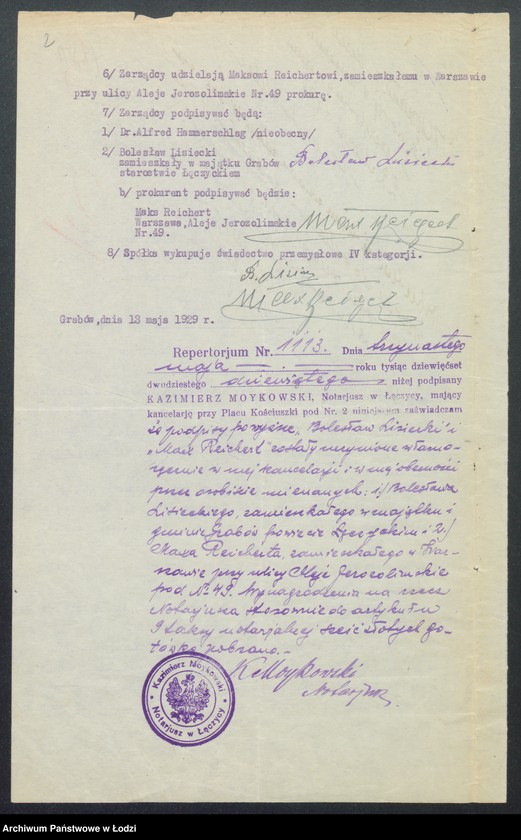 2
6/ Zarządcy udzielają Maksowi Reichertowi, zamieszkałemu w Warszawie
przy ulicy Aleje Jerozolimskie Nr.49 prokurę.
7/ Zarządcy podpisywać będą:
1/ Dr.Alfred Hammerschlag /nieobecny/
2/ Bolesław Lisiecki
zamieszkały w majątku Grabów Bolesław Lisiecki
starostwie Łęczyckiem
b/ prokurent podpisywać będzie:
Maks Reichert
Warszawa, Aleje Jerozolimskie
Nr.49.
8/ Spółka wykupuje świadectwo przemysłowe IV kategorji.
Grabów, dnia 13 maja 1929 r.
Repertorjum Nr. 1113. Dnia trzynastego
maja roku tysiąc dziewięćset
dwudziestego dziewiątego niżej podpisany
KAZIMIERZ MOYKOWSKI, Notarjusz w Łęczycy, mający
kancelarję przy Placu Kościuszki pod Nr. 2 niniejszem zaświadczam
że podpisy powyższe, Bolesław Lisiecki i
„Max Reichert" zostały uczynione własno-
ręcznie w mej kancelarji i w mej obecności
przez osobiście mi znanych: 1/ Bolesława
Lisieckiego, zamieszkałego w majątku i
gminie Grabów powiecie Łęczyckim i 2/
Maxa Reicherta, zamieszkałego w War-
szawie przy ulicy Aleje Jerozolimskie
pod № 49. Wynagrodzenia na rzecz
Notarjusza stosownie do artykułu
9 taksy notarjalnej sześć złotych go-
tówką pobrano.-
KMoykowski
Notarjusz.
Kazimierz Moykowski
Notarjusz w Łęczycy
Archiwum Państwowe w Łodzi